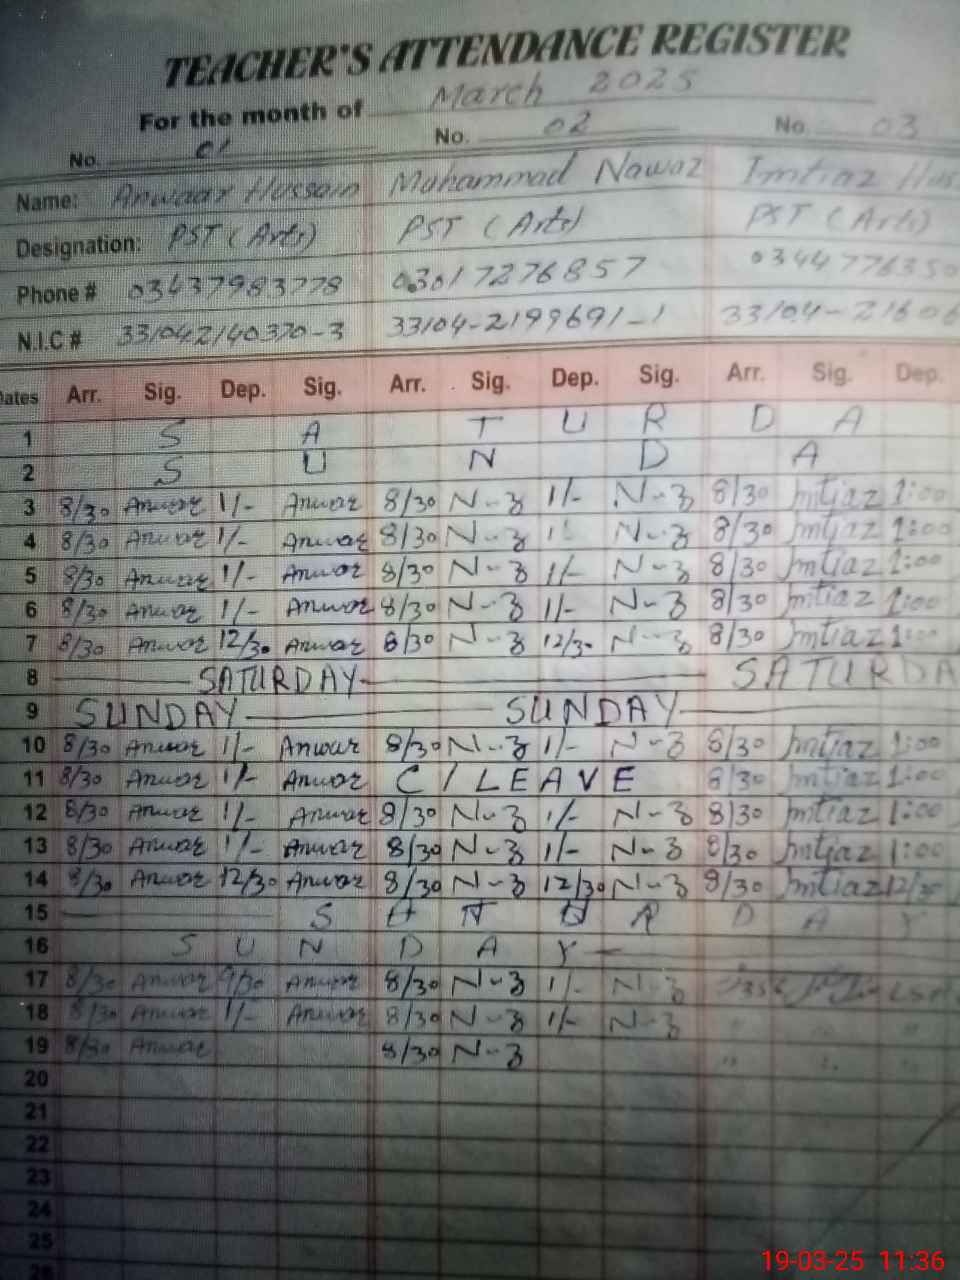 TEACHER'S ATTENDANCE REGISTER
For the month of March 2025
No. 01 No. 02 No. 03
Name: Anwaar Hussain Muhammad Nawaz Imtiaz Hus
Designation: PST (Arts) PST (Arts) PST (Arts)
Phone # 03437983778 03017276857 0344776350
N.I.C # 331042140370-3 33104-2199691-1 33104-21606
Dates Arr. Sig. Dep. Sig. Arr. Sig. Dep. Sig. Arr. Sig. Dep.
1 S A T U R D A
2 S U N D A
3 8/30 Anwar 1/- Anwar 8/30 N-z 1/- N-z 8/30 Imtiaz 1:00
4 8/30 Anwar 1/- Anwar 8/30 N-z N-z 8/30 Imtiaz 1:00
5 8/30 Anwar 1/- Anwar 8/30 N-z 1/- N-z 8/30 Imtiaz 1:00
6 8/30 Anwar 1/- Anwar 8/30 N-z 1/- N-z 8/30 Imtiaz 1:00
7 8/30 Anwar 12/30 Anwar 8/30 N-z 12/30 N-z 8/30 Imtiaz
8 SATURDAY SATURDA
9 SUNDAY SUNDAY
10 8/30 Anwar 1/- Anwar 8/30 N-z 1/- N-z 8/30 Imtiaz 1:00
11 8/30 Anwar 1/- Anwar C/LEAVE 8/30 Imtiaz 1:00
12 8/30 Anwar 1/- Anwar 8/30 N-z 1/- N-z 8/30 Imtiaz 1:00
13 8/30 Anwar 1/- Anwar 8/30 N-z 1/- N-z 8/30 Imtiaz 1:00
14 8/30 Anwar 12/30 Anwar 8/30 N-z 12/30 N-z 8/30 Imtiaz 12/30
15 S R D A Y
16 S U N D A Y
17 8/30 Anwar Anwar 8/30 N-z 1/- N-z
18 8/30 Anwar 1/- Anwar 8/30 N-z 1/- N-z
19 8/30 Anwar 8/30 N-z
20
21
22
23
24
25
26
19-03-25 11:36